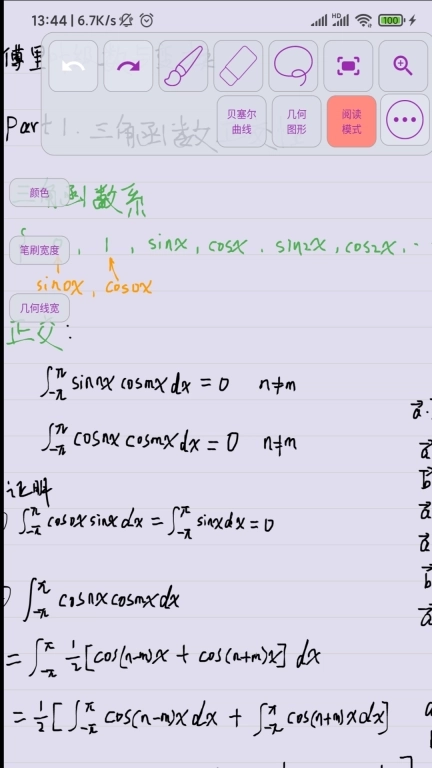 13:44 | 6.7K/s HD 100
傅里
贝塞尔
曲线
几何
图形
阅读
模式
Part 1. 三角函数
颜色
三角函数系
笔刷宽度
, 1 , sinx , cosx . sin2x , cos2x , ..
sin0x , cos0x
几何线宽
正交 :
∫_{-π}^{π} sinnx cosmx dx = 0 n≠m
∫_{-π}^{π} cosnx cosmx dx = 0 n≠m
证明
∫_{-π}^{π} cos0x sinx dx = ∫_{-π}^{π} sinx dx = 0
∫_{-π}^{π} cosnx cosmx dx
= ∫_{-π}^{π} 1/2 [cos(n-m)x + cos(n+m)x] dx
= 1/2 [ ∫_{-π}^{π} cos(n-m)x dx + ∫_{-π}^{π} cos(n+m)x dx]